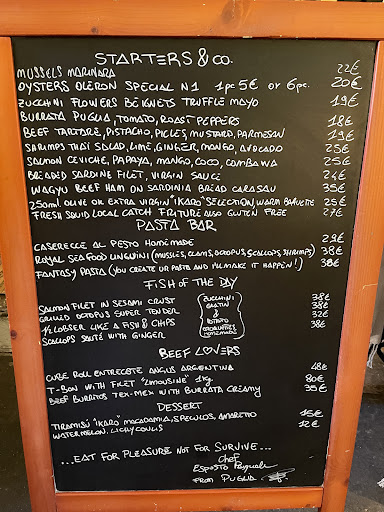 STARTERS & CO.
MUSSELS MARINARA 22€
OYSTERS OLERON SPECIAL N1 1pc 5€ or 6pc. 20€
ZUCCHINI FLOWERS BEIGNETS TRUFFLE MAYO 19€
BURRATA PUGLIA, TOMATO, ROAST PEPPERS 18€
BEEF TARTARE, PISTACHIO, PICLES, MUSTARD, PARMESAN 19€
SHRIMPS THAÏ SALAD, LIME, GINGER, MANGO, AVOCADO 25€
SALMON CEVICHE, PAPAYA, MANGO, COCO, COMBAWA 25€
BREADED SARDINE FILET, VIRGIN SAUCE 24€
WAGYU BEEF HAM ON SARDINIA BREAD CARASAU 35€
250ml. OLIVE OIL EXTRA VIRGIN "IKARO" SELECTION WARM BAGUETTE 25€
FRESH SQUID LOCAL CATCH FRITURE ALSO GLUTEN FREE 27€
PASTA BAR
CASERECCE AL PESTO HOMEMADE 29€
ROYAL SEAFOOD LINGUINI (MUSSLES, CLAMS, OCTOPUS, SCALLOPS, SHRIMPS) 38€
FANTASY PASTA (YOU CREATE OR PASTA AND I'LL MAKE IT HAPPEN!) 38€
FISH OF THE DAY
SALMON FILET IN SESAM CRUST 38€
GRILLED OCTOPUS SUPER TENDER 38€
½ LOBSER LIKE A FISH & CHIPS 32€
SCALLOPS SAUTÉ WITH GINGER 38€
ZUCCHINI
GRATIN
&
POTATO
CROQUETTES
HOMEMADE
BEEF LOVERS
CUBE ROLL ENTRECOTE ANGUS ARGENTINA 48€
T-BON WITH FILET "LIMOUSINE" 1Kg 80€
BEEF BURRITOS TEX-MEX WITH BURRATA CREAMY 35€
DESSERT
TIRAMISU "IKARO" MACADAMIA, SPECULOS, AMARETTO 15€
WATERMELON. LICHY COULIS 12€
...EAT FOR PLEASURE NOT FOR SURVIVE...
Chef
ESPOSTO Pasquale
FROM PUGLIA